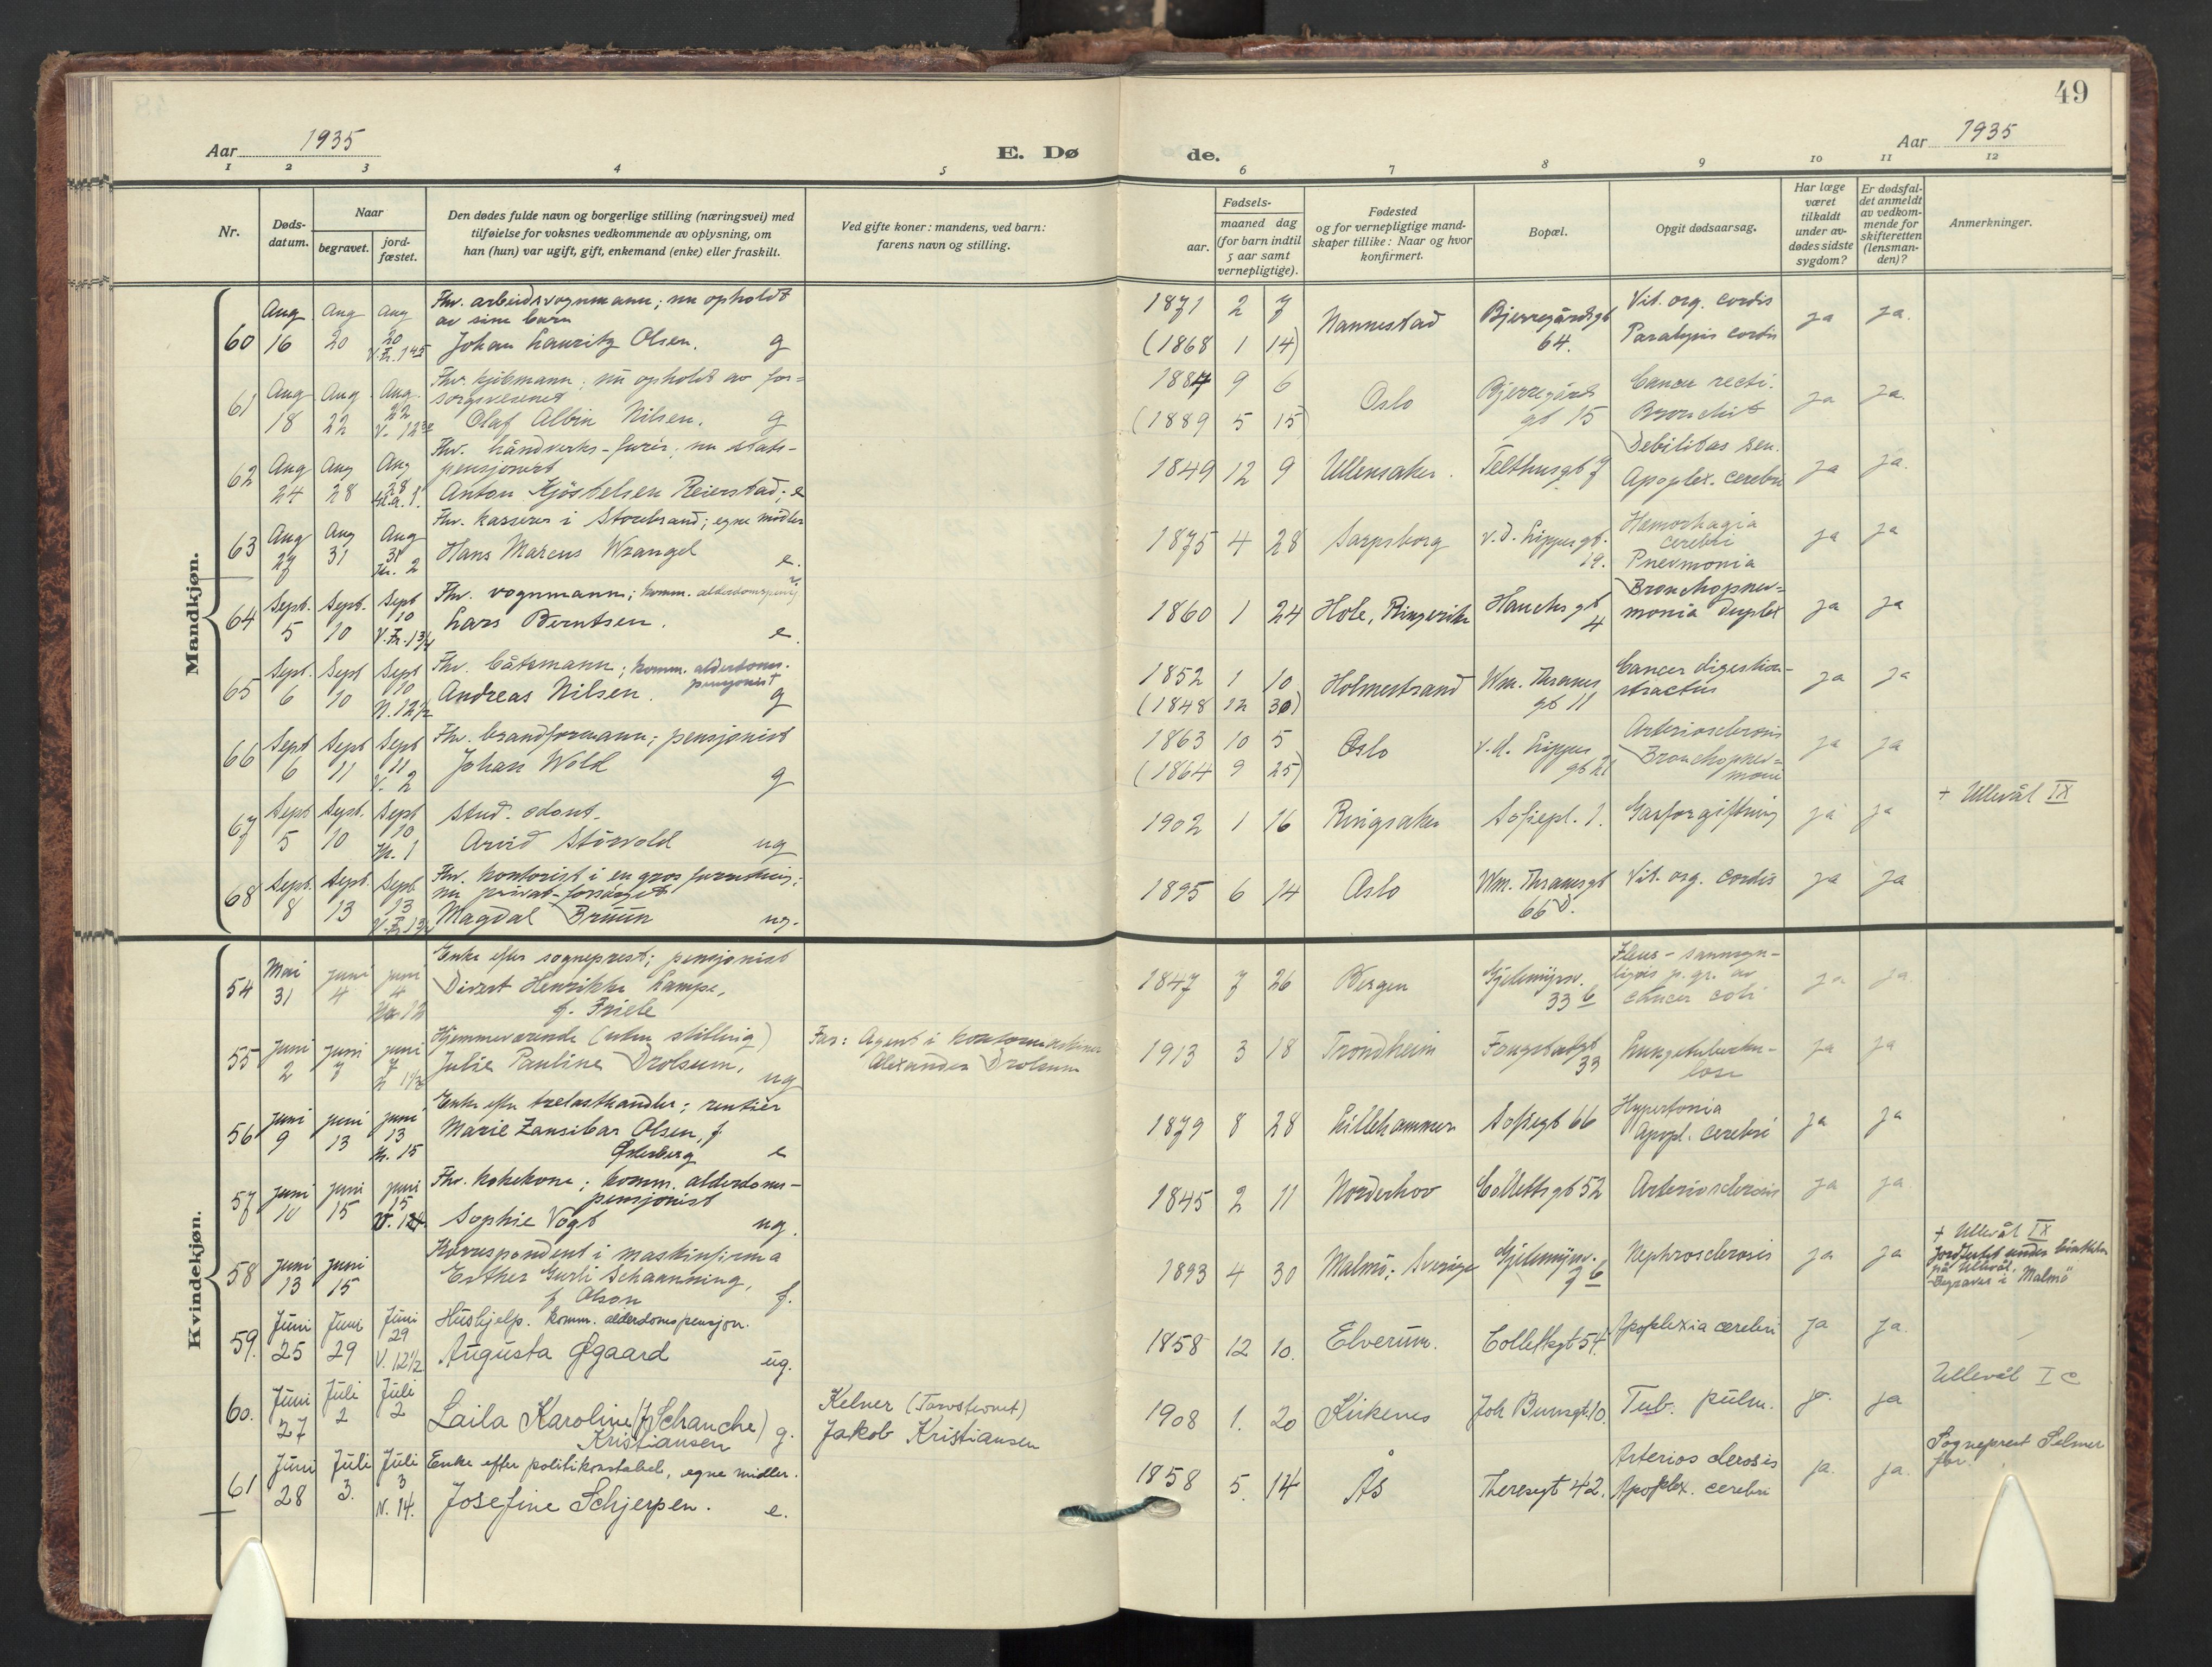 49
Aar 1935
E. Dø
de.
Aar 1935
1 2 3 4 5 6 7 8 9 10 11 12
Nr.
Døds-
datum.
Naar
begravet.
jord-
fæstet.
Den dødes fulde navn og borgerlige stilling (næringsvei) med
tilføielse for voksnes vedkommende av oplysning, om
han (hun) var ugift, gift, enkemand (enke) eller fraskilt.
Ved gifte koner: mandens, ved barn:
farens navn og stilling.
aar.
Fødsels-
maaned dag
(for barn indtil
5 aar samt
vernepligtige).
Fødested
og for vernepligtige mand-
skaper tillike: Naar og hvor
konfirmert.
Bopæl.
Opgit dødsaarsag.
Har læge
været
tilkaldt
under av-
dødes sidste
sygdom?
Er dødsfal-
det anmeldt
av vedkom-
mende for
skifteretten
(lensman-
den)?
Anmerkninger.
Mandkjøn.
60 Aug 16 Aug 20 Aug 20 V.Fr. 1 45
Fhv. arbeidsvognmann; nu opholdt
av sine barn
Johan Lauritz Olsen. g
1871 2 7
(1868 1 14)
Nannestad
Bjerregårdsgt
64.
Vit. org. cordis
Paralysis cordis
ja ja.
61 Aug 18 Aug 22 Aug. 22 V. 12
Fhv. kjöbmann; nu opholdt av for-
sorgsvesenet
Olaf Albin Nilsen. g
1884 9 6
(1889 5 15)
Oslo
Bjerregårds
gt 15
Cancer recti.
Bronchit
ja ja.
62 Aug 24 Aug 28 Aug 28 1.
Fhv. håndverks-furér; nu stats-
pensjonert
Anton Kjöstelsen Reierstad; e
1849 12 9
Ullensaker.
Telthusgt 7
Debilitas sen.
Apoplex. cerebri
ja ja.
63 Aug 27 Aug 31 Aug 31 Kr. 2
Fhv. kasserer i Storebrand; egne midler
Hans Marcus Wrangel e.
1875 4 28
Sarpsborg
v.d. Lippes gt.
19.
Hemorhagia
cerebri
Pnevmonia
ja ja
64 Sept. 5 Sept. 10 Sept 10 V.Fr. 1 3/4
Fhv. vognmann; komm. alderdomspensj
Lars Berntsen. e.
1860 1 24
Hole, Ringerike
Hauchs gt
4
Bronchopnev-
monia duplex
ja ja
65 Sept. 6 Sept 10 Sept 10 N. 12 1/2
Fhv. båtsmann; komm. alderdoms-
pensjonist
Andreas Nilsen. g
1852 1 10
(1848 12 30)
Holmestrand
Wm. Thranes
gt 11
Cancer digestion-
stractus
ja ja
66 Sept 6 Sept 11 Sept 11 V. 2
Fhv. brandformann; pensjonist
Johan Wold g
1863 10 5
(1864 9 25)
Oslo
v.d. Lippes
gt 21
Arteriosclerosis
Bronchopnev-
moni
ja ja
67 Sept 5 Sept. 10 Sept 10 Kr. 1
Stud. odont.
Arvid Störvold ug
1902 1 16
Ringsaker
Sofiepl. 1.
Gasforgiftning
ja ja
+ Ullevål IX
68 Sept. 8 Sept. 13 Sept. 13
Fhv. kontorist i en gros forretning;
nu privat-forsörget
Magdal Brüün ug.
1895 6 14
Oslo
Wm. Thranesgt
66 D.
Vit. org. cordis
ja ja
Kvindekjøn.
54 Mai 31 juni 4 juni 4 12
Enke efter sogneprest; pensjonist
Divert Henrikke Lampe,
f. Friele
1847 7 26
Bergen
Gjetemyrsv.
33 b
Ileus - sannsyn-
ligvis p. gr. av
cancer coli
ja ja
55 juni 2 juni 7 juni 7
Hjemmeværende (uten stilling)
Julie Pauline Drolsum, ug
Far: Agent i kontormaskiner
Alexander Drolsum
1913 3 18
Trondheim
Fougstadgt
33
Lungetuberku-
lose
ja ja
56 juni 9 juni 13 juni 13 Kr. 15
Enke efter trelasthandler; rentiér
Marie Zansibar Olsen, f.
Østerberg e
1879 8 28
Lillehammer
Sofiegt 66
Hypertonia
Apopl. cerebri
ja ja
57 juni 10 juni 15 juni 15 V. 12
Fhv. kokekone; komm. alderdoms-
pensjonist
Sophie Vogt ug.
1845 2 11
Norderhov
Collettsgt 52
Arteriosclerosis
ja ja
58 juni 13 juni 15
Korrespondent i maskinfirma
Esther Gurli Schaanning,
f. Olson f.
1893 4 30
Malmö; Sverige
Gjetemyrsv.
7 b
Nephrosclerosis
ja ja
+ Ullevål IX
Jordfestet
på Ullevål.
Begraves i Malmö
59. Juni 25 Juni 29 Juni 29 V. 12 1/2
Hushjelp. komm. alderdomspensjon.
Augusta Øgaard ug.
1858 12 10.
Elverum.
Collettsgt 54.
Apoplexia cerebri
ja ja.
60. Juni 27 Juli 2 Juli 2
Laila Karoline (f. Schanche)
Kristiansen g.
Kelner (Tarostionet)
Jakob Kristiansen
1908 1. 20
Kirkenes
Joh Brunsgt. 10.
Tub. pulm.
ja ja
Ullevål I c
61 Juni 28 Juli 3. Juli 3 N. 14.
Enke efter politikonstabel, egne midler.
Josefine Schjerpen. e.
1858 5. 14
Ås
Theresgt 42.
Arteriosclerosis
Apoplex. cerebri
ja. ja.
Sogneprest Selmer
for.